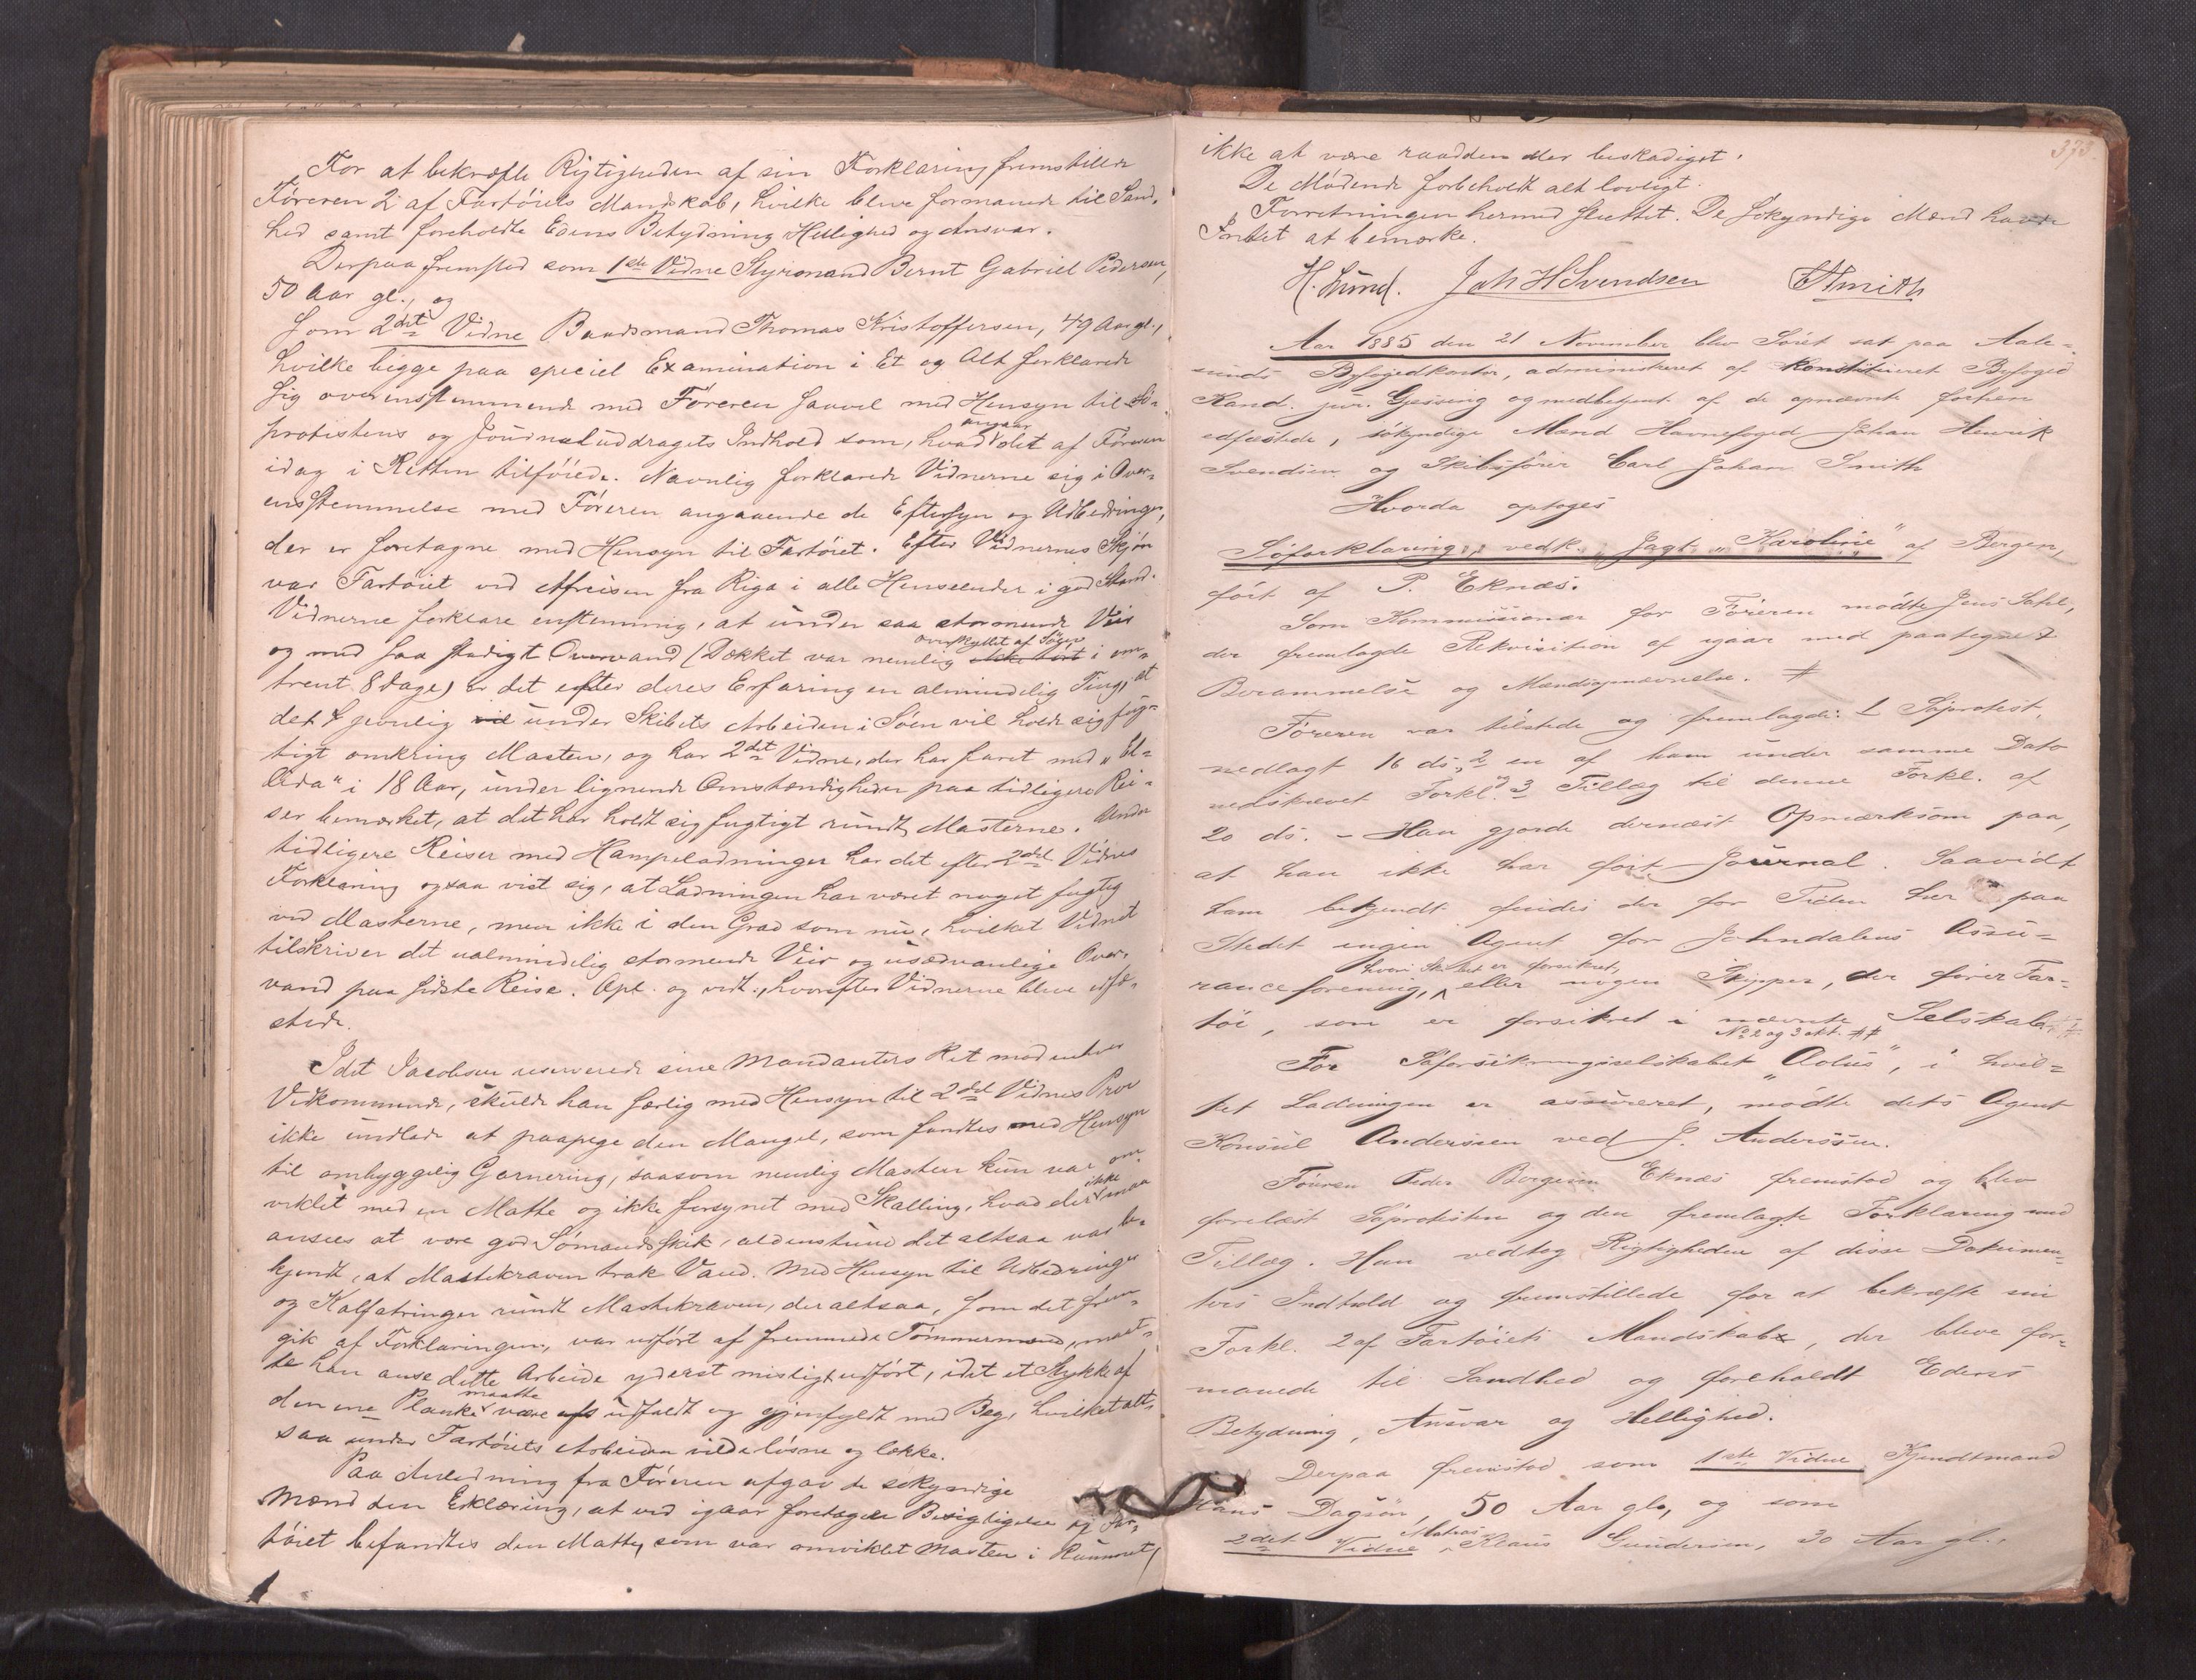 For at bekræfte Rigtigheden af sin Forklaring fremstillede
Føreren 2 af Fartøiets Mandskab, hvilke bleve formanede til Sand-
hed samt foreholdte Edens Betydning Hellighed og Ansvar.
Derpaa fremstod som 1ste Vidne Styrmand Bernt Gabriel Pedersen,
50 Aar gl., og
som 2det Vidne Baadsmand Thomas Kristoffersen, 49 Aar gl.,
hvilke begge paa speciel Examination i Et og Alt forklarede
sig overensstemmende med Føreren saavel med Hensyn til Sø-
protestens og Journaluddragets Indhold som, hvad angaar det af Føreren
idag i Retten tilførede. Navnlig forklarede Vidnerne sig i Over-
ensstemmelse med Føreren angaaende de Eftersyn og Udbedringer,
der er foretagne med Hensyn til Fartøiet. Efter Vidnernes Skjøn
var Fartøiet ved Afreisen fra Riga i alle Henseender i god Stand.
Vidnerne forklare enstemmig, at under saa stormende Veir
og med saa stadigt Overvand (Dækket var nemlig overskyllet af Søen i om-
trent 8 Dage) er det efter deres Erfaring en almindelig Ting, at
det jevnlig under Skibets Arbeiden i Søen vil holde sig fug-
tigt omkring Masten, og har 2det Vidne, der har faret med „El-
lida“ i 18 Aar, under lignende Omstændigheder paa tidligere Rei-
ser bemærket, at det har holdt sig fugtigt rundt Masterne. Under
tidligere Reiser med Hampeladninger har det efter 2det Vidnes
Forklaring ogsaa vist sig, at Ladningen har været noget fugtig
ved Masterne, men ikke i den Grad som nu, hvilket Vidnet
tilskriver det ualmindelig stormende Veir og usædvanlige Over-
vand paa sidste Reise. Opl. og vedt., hvorefter Vidnerne bleve edfæ-
stede.
Idet Jacobsen reserverede sine Mandanters Ret mod enhver
Vedkommende, skulde han særlig med Hensyn til 2det Vidnes Prov
ikke undlade at paapege den Mangel, som fandtes med Hensyn
til omhyggelig Garnering, saasom nemlig Masten kun var om-
viklet med en Matte og ikke forsynet med Skalling, hvad der ikke maa
ansees at være god Sømandsskik, aldenstund det altsaa var be-
kjendt, at Mastekraven trak Vand. Med Hensyn til Udbedringer
og Kalfatringer rundt Mastekraven, der altsaa, som det frem-
gik af Forklaringen, var udført af fremmede Tømmermænd, maat-
te han anse dette Arbeide yderst misligt udført, idet et Stykke af
den ene Planke maatte være udfaldt og gjenfyldt med Beg, hvilket alt-
saa under Fartøiets Arbeiden vilde løsne og lække.
Paa Anledning fra Føreren afgav de søkyndige
Mænd den Erklæring, at ved igaar foretagen Besigtigelse af Far-
tøiet befandtes den Matte, som var omviklet Masten i Rummet,
373.
ikke at være raadden eller beskadiget.
De Mødende forbeholdt alt lovligt.
Forretningen hermed sluttet. De søkyndige Mænd havde
Intet at bemærke.
H. Lund. Joh H Svendsen CSmith
Aar 1885 den 21 November blev Søret sat paa Aale-
sunds Byfogedkontor, administreret af konstitueret Byfoged
Kand. jur. Gjessing og medbetjent af de opnævnte forhen
edfæstede, søkyndige Mænd Havnefoged Johan Henrik
Svendsen og Skibsfører Carl Johan Smith
Hvorda optoges
Søforklaring, vedk. Jagt „Karoline“ af Bergen,
ført af P. Eknæs.
Som Kommissionær for Føreren mødte Jens Dahl,
der fremlagde Rekvisition af igaar med paategnet
Berammelse og Mændsopnævnelse. #
Føreren var tilstede og fremlagde: 1 Søprotest,
nedlagt 16 ds., 2 en af ham under samme Dato
nedskrevet Forkl. og 3 Tillæg til denne Forkl. af
20 ds. – Han gjorde dernæst Opmærksom paa,
at han ikke har ført Journal. Saavidt
ham bekjendt findes der for Tiden her paa
Stedet ingen Agent for Johndalens Assu-
ranceforening, hvori Skibet er forsikret, eller nogen Skipper, der fører Far-
tøi, som er forsikret i nævnte Selskab.
No 2 og 3 ##
For Søforsikringsselskabet „Æolus“, i hvil-
ket Ladningen er assureret, mødte dets Agent
Konsul Anderssen ved J. Anderssen.
Føreren Peder Børgesen Eknæs fremstod og blev
forelæst Søprotesten og den fremlagte Forklaring med
Tillæg. Han vedtog Rigtigheden af disse Dokumen-
ters Indhold og fremstillede for at bekræfte sin
Forkl. 2 af Fartøiets Mandskab, der bleve for-
manede til Sandhed og foreholdt Edens
Betydning, Ansvar og Hellighed.
Derpaa fremstod som 1ste Vidne Kjendtmand
Hans Dagsøn, 50 Aar gl., og som
2det Vidne Matros Klaus Gundersen, 30 Aar gl.,